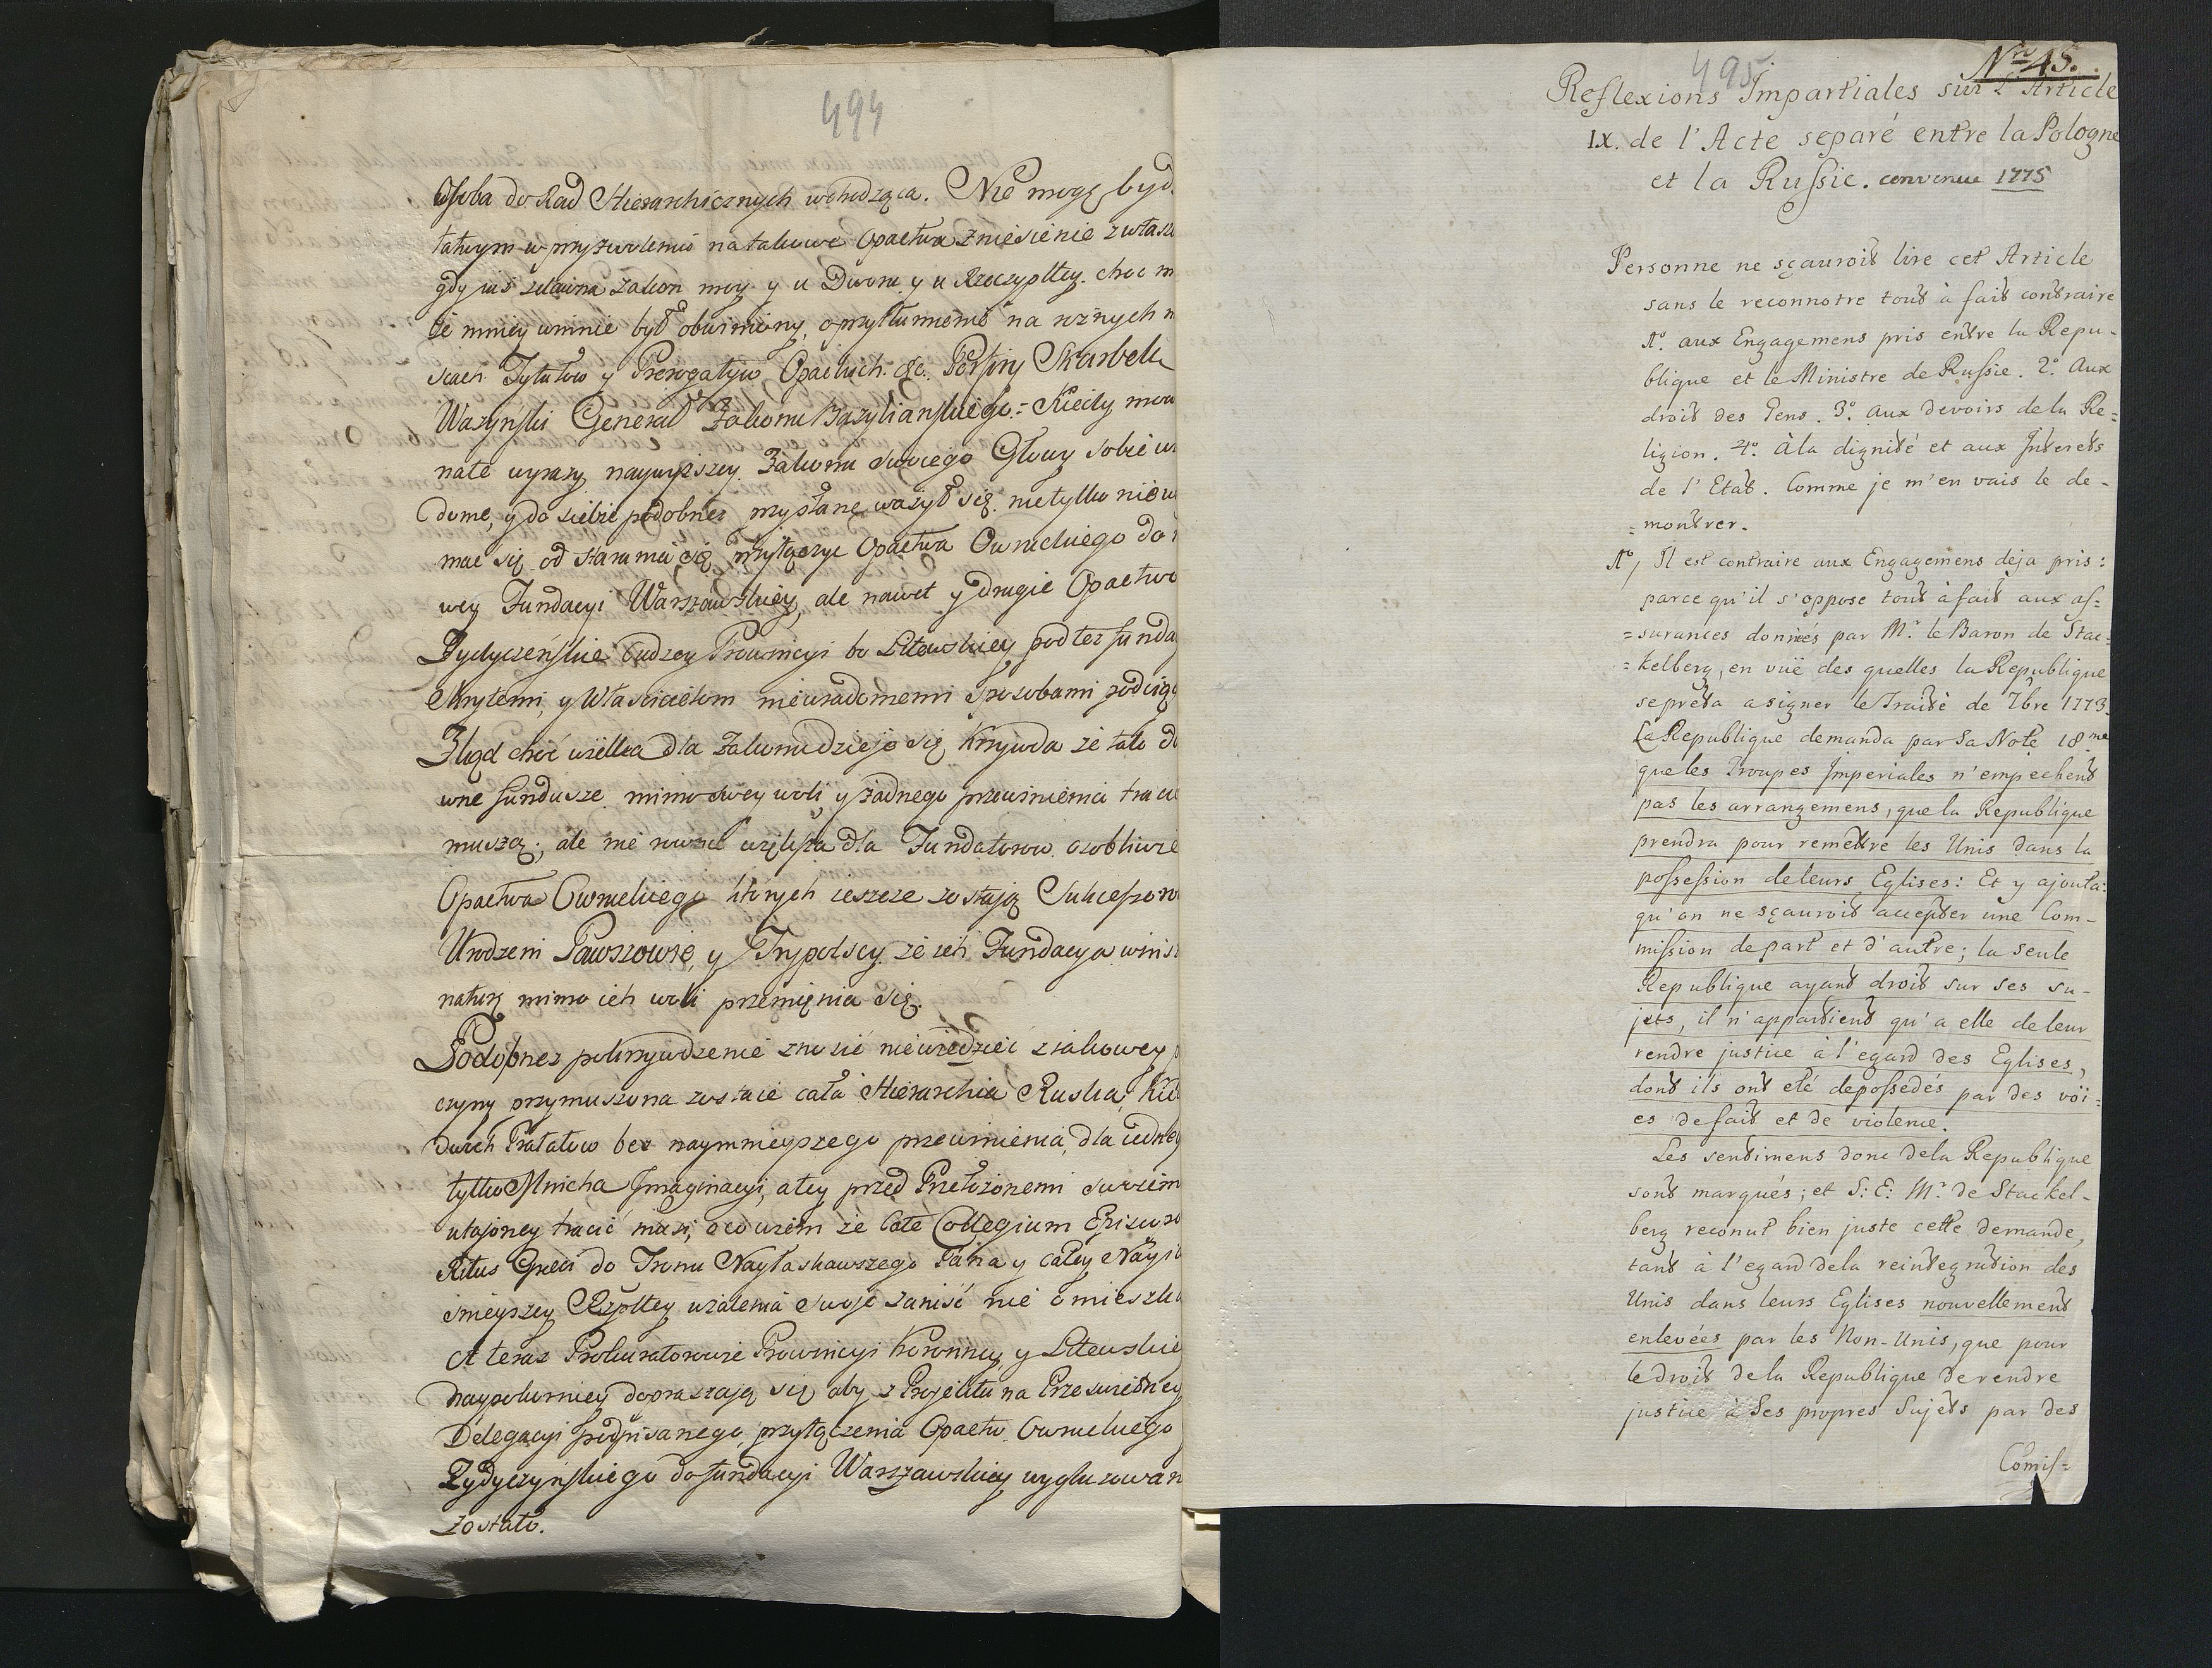 494
Osoba do Rad Hierarchicznych wchodząca. Nie mogę byd
łatwym w przyzwoleniu na takowe Opactwa zniesienie zwłasz
gdy iuż zelwina Zakon moy y u Dworu y u Rzeczypltey. choc m
że mniey winnie był obwiniony, o przytłumienie na rożnych m
scach Tytułow y Prerogatyw Opackich. &c. Porfiry Skarbek
Ważynski Generał Zakonu Bazylianskiego.= Kiedy mow
nate wyrazy naywyższey Zakonu swoiego Głowy sobie w
dome, y do siebie podobnez przysłane, ważył się nietylko nie w
mac się od starania się przyłączyc Opactwa Owruckiego do
wey Fundacyi Warszawskiey, ale nawet y drugie Opactwo
Zydyczeńskie Cudzey Prowincyi bo Litewskiey pod tez funda
skrytemi, y Własciciełom niewiadomemi sposobami podciąg
Zkąd choć wielka dla Zakonu dzieje się krzywda że tak d
wne fundusze mimo swey woli, y żadnego przewinienia traci
muszą; ale nie rownie większa dla Fundatorow osobliwie
Opactwa Owruckiego ktorych ieszcze zostają Sukcessorow
Urodzeni Pawszowie, y Trypolscy ze ich Fundacya w ins
naturę mimo ich woli przemięnia się.
Podobnez pokrzywdzenie znosić niewiedzieć z iakowey p
czyny przymuszona zostaie cała Hierarchia Ruska, kie
dwoch Prałatow bez naymnieyszego przewinienia, dla iedney
tylko Mnicha Jmaginacyi, a tey przed Przełożonemi swoiem
utajoney tracić musi, o co wiem że Całe Collegium Episcopo
Ritus Græci do Tronu Nayłaskawszego Pana y całey Nayia
śnieyszey Rzpltey użalenia swoje zanisć nie omieszka
A teraz Prokuratorowie Prowincyi Koronney y Litewskie
naypokorniey dopraszają się aby z Projektu na Przeswietney
Delegacyi podpisanego, przyłączenia Opactw Owruckiego
Zydyczyńskiego do fundacyi Warszawskiey wygluzowan
zostało.
495
Nro 45.
Reflexions Impartiales sur l'Article
IX. de l'Acte separé entre la Pologne
et la Russie. convenue 1775
Personne ne sçauroit lire cet Article
sans le reconnotre tout à fait contraire
1º. aux Engagemens pris entre la Repu-
blique et le Ministre de Russie. 2º. Aux
droit des Gens. 3º. aux devoirs de la Re=
ligion. 4º. À la dignité et aux Interets
de l'Etat. Comme je m'en vais le de-
=montrer.
1º, Il est contraire aux Engagemens deja pris:
parce qu'il s'oppose tout à fait aux as=
=surances donnés par Mr. le Baron de Stac-
=kelberg, en vüe des quelles la Republique
se prêta a signer le Traité de 7bre 1773.
La Republique demanda par sa Note 18me
que les Troupes Imperiales n'empechent
pas les arrangemens, que la Republique
prendra pour remettre les Unis dans la
possession de leurs Eglises: Et y ajouta:
qu'on ne sçauroit accepter une Com-
mission de part et d'autre; la seule
Republique ayant droit sur ses su-
jets, il n'appartient qu'a elle de leur
rendre justice à l'egard des Eglises,
dont ils ont eté depossedés par des voï=
es de fait et de violence.
Les sentimens donc de la Republique
sont marqués; et S: E: Mr. de Stackel-
berg reconut bien juste cette demande,
tant à l'egard de la reintegration des
Unis dans leurs Eglises nouvellement
enlevées par les Non-Unis, que pour
le droit de la Republique de rendre
justice à ses propres Sujets par des
Comis=